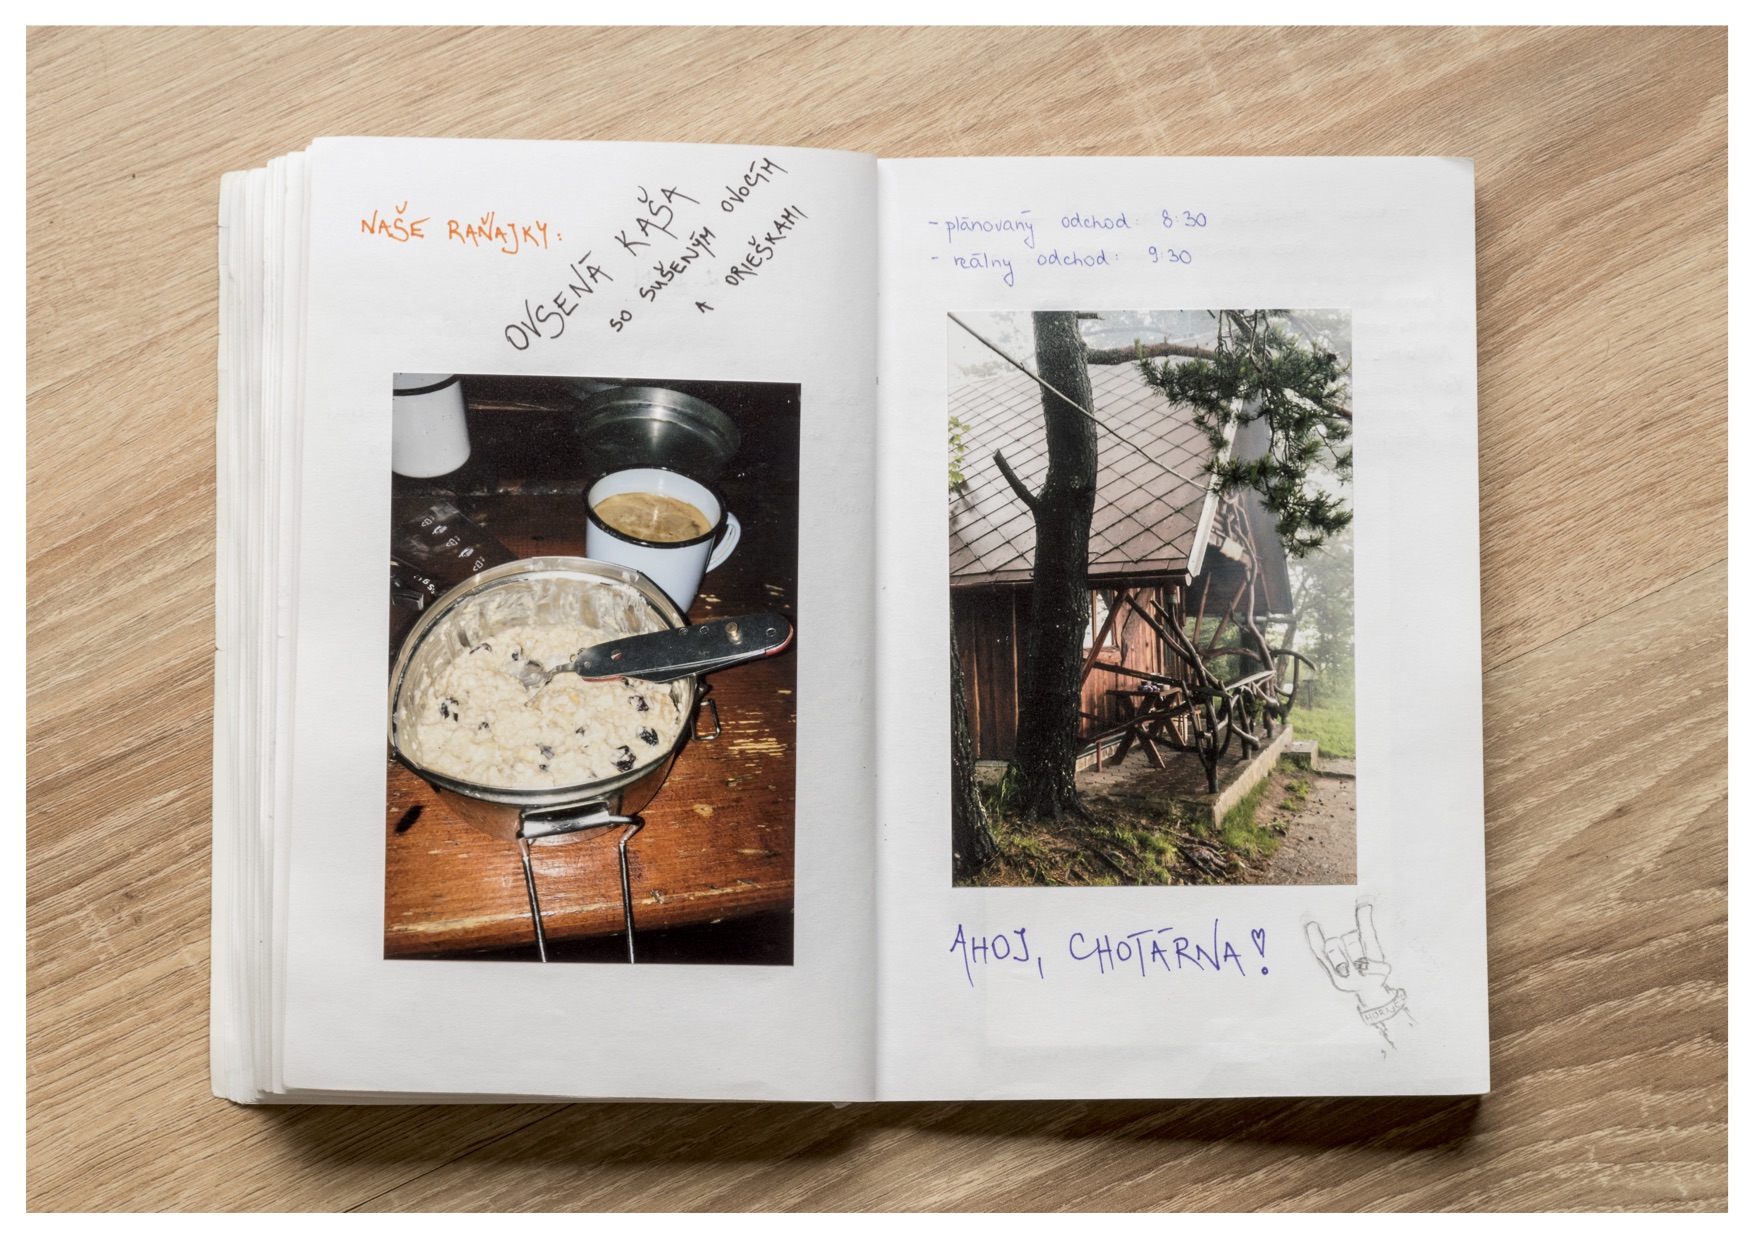 NAŠE RAŇAJKY:
OVSENÁ KAŠA
SO SUŠENÝM OVOCÍM
A ORIEŠKAMI
- plánovaný odchod: 8:30
- reálny odchod: 9:30
AHOJ, CHOTÁRNA!